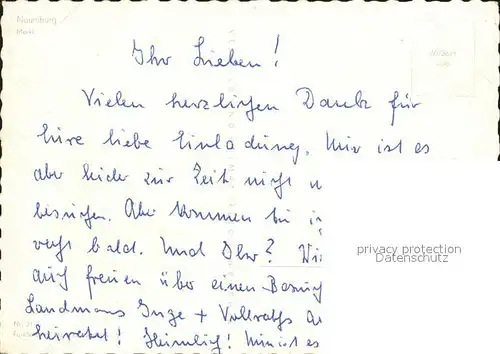 Naumburg
Markt
Ihr Lieben!
Vielen herzlichen Dank für
Eure liebe Einladung. Mir ist es
aber leider zur Zeit nicht
besuchen. Aber kommen
recht bald. Und Ihr? Wi
auch freuen über einen Besuch
Landmanns Inge + Vollraths
heiratet! Heimlich! Nun ist es
privacy protection
Datenschutz